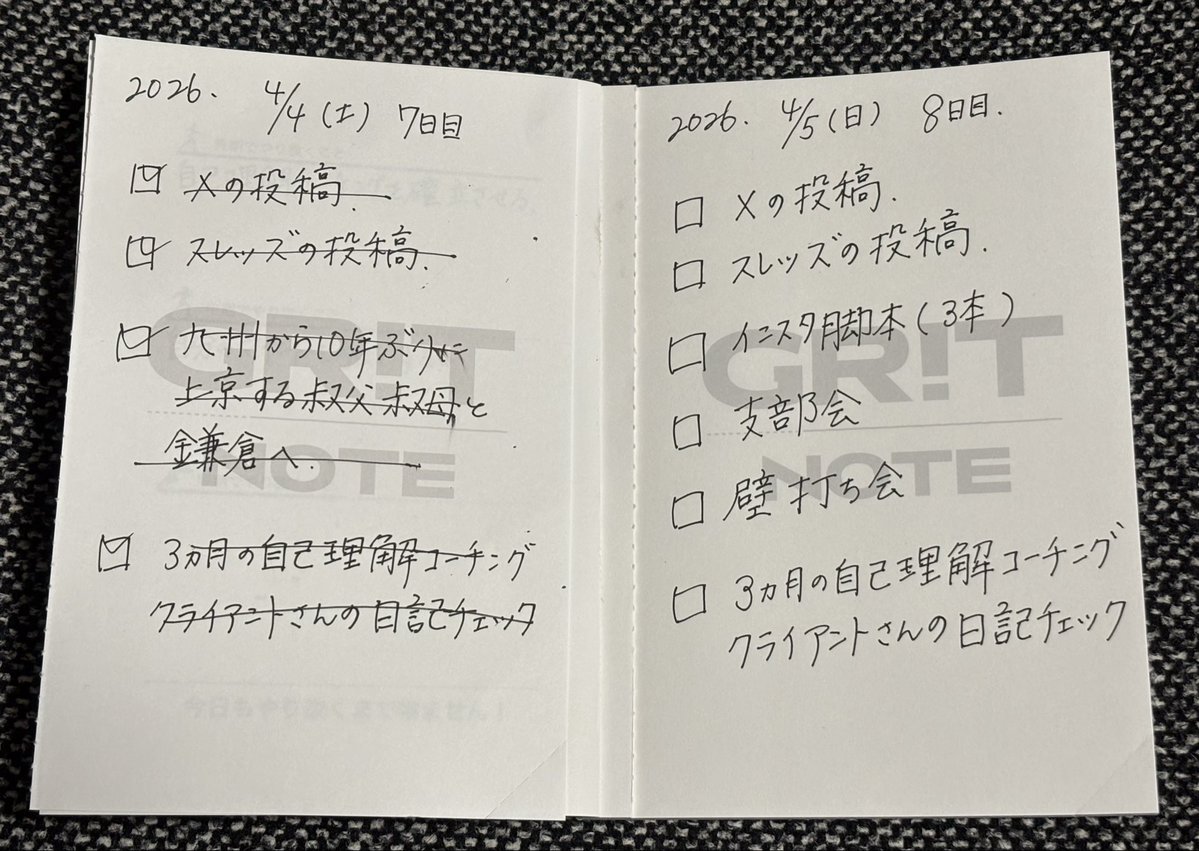 2026. 4/4(土) 7日目
Xの投稿.
スレッズの投稿.
九州から10年ぶりに
上京する叔父叔母と
鎌倉へ.
3カ月の自己理解コーチング
クライアントさんの日記チェック
GR!T
NOTE
2026. 4/5(日) 8日目.
Xの投稿.
スレッズの投稿.
インスタ脚本(3本)
支部会
壁打ち会
3カ月の自己理解コーチング
クライアントさんの日記チェック
GR!T
NOTE